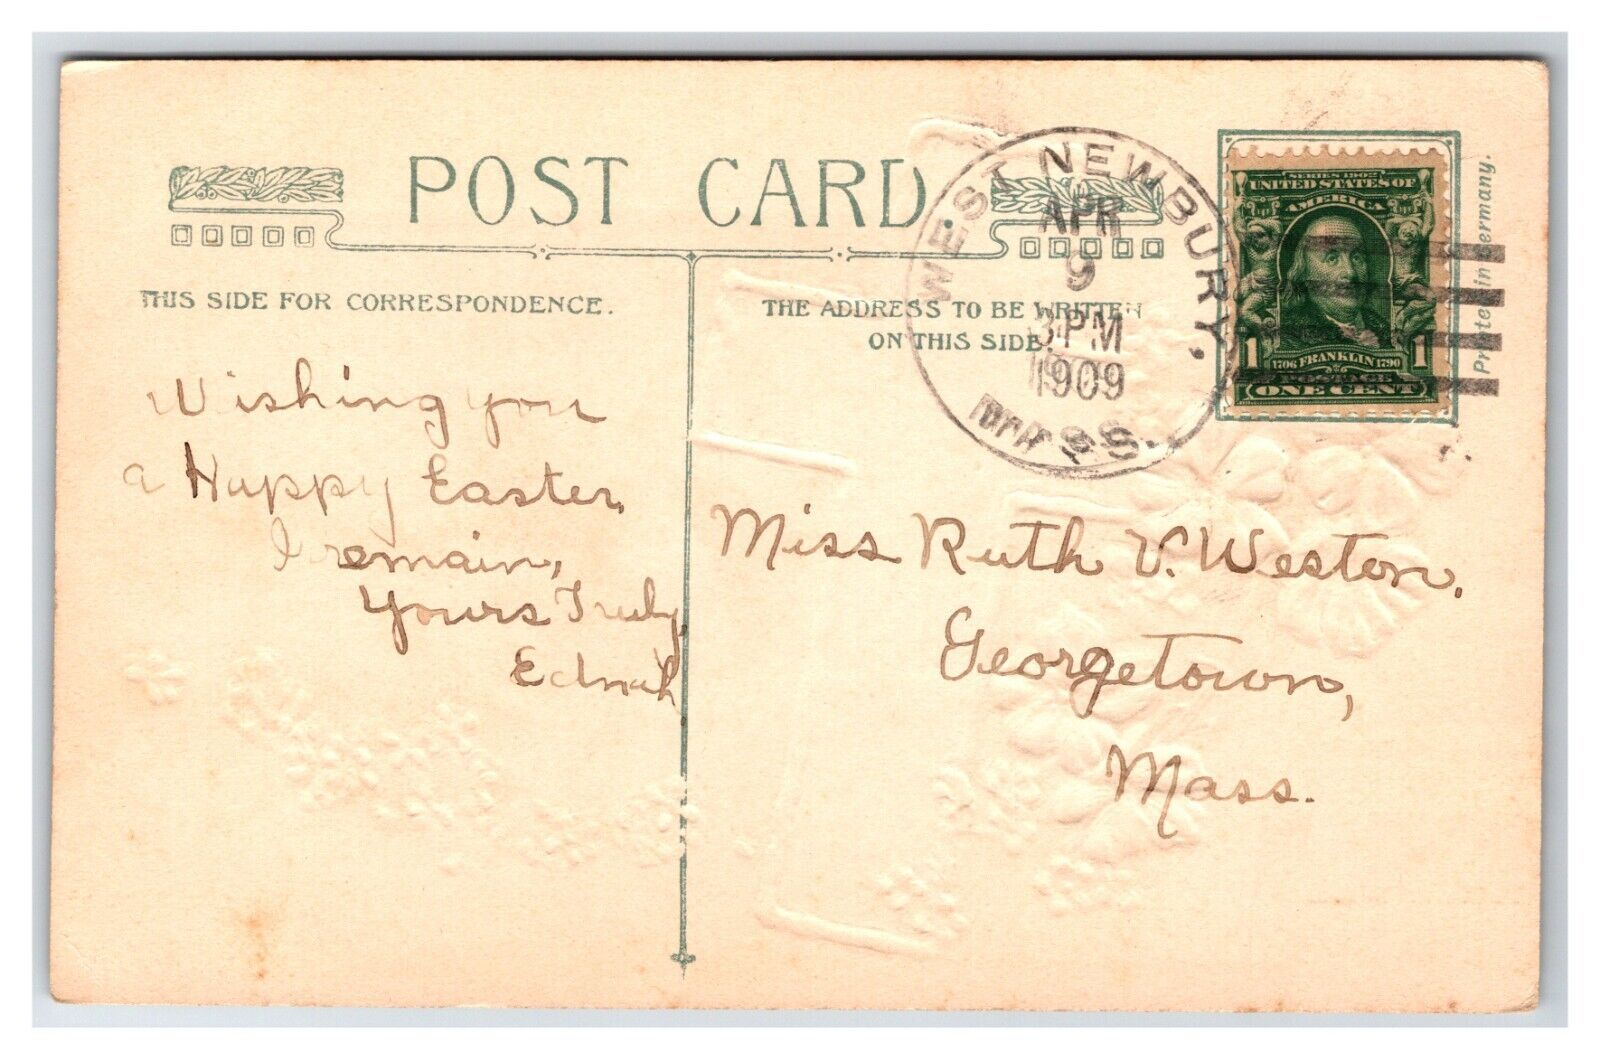 POST CARD
THIS SIDE FOR CORRESPONDENCE.
THE ADDRESS TO BE WRITTEN
ON THIS SIDE.
WEST NEWBURY,
APR
9
3 PM
1909
MASS.
SERIES 1902
UNITED STATES OF
AMERICA
1 1706 FRANKLIN 1790 1
POSTAGE
ONE CENT
Printed in Germany.
Wishing you
a Happy Easter,
I remain,
Yours Truly,
Ednah
Miss Ruth V. Weston,
Georgetown,
Mass.